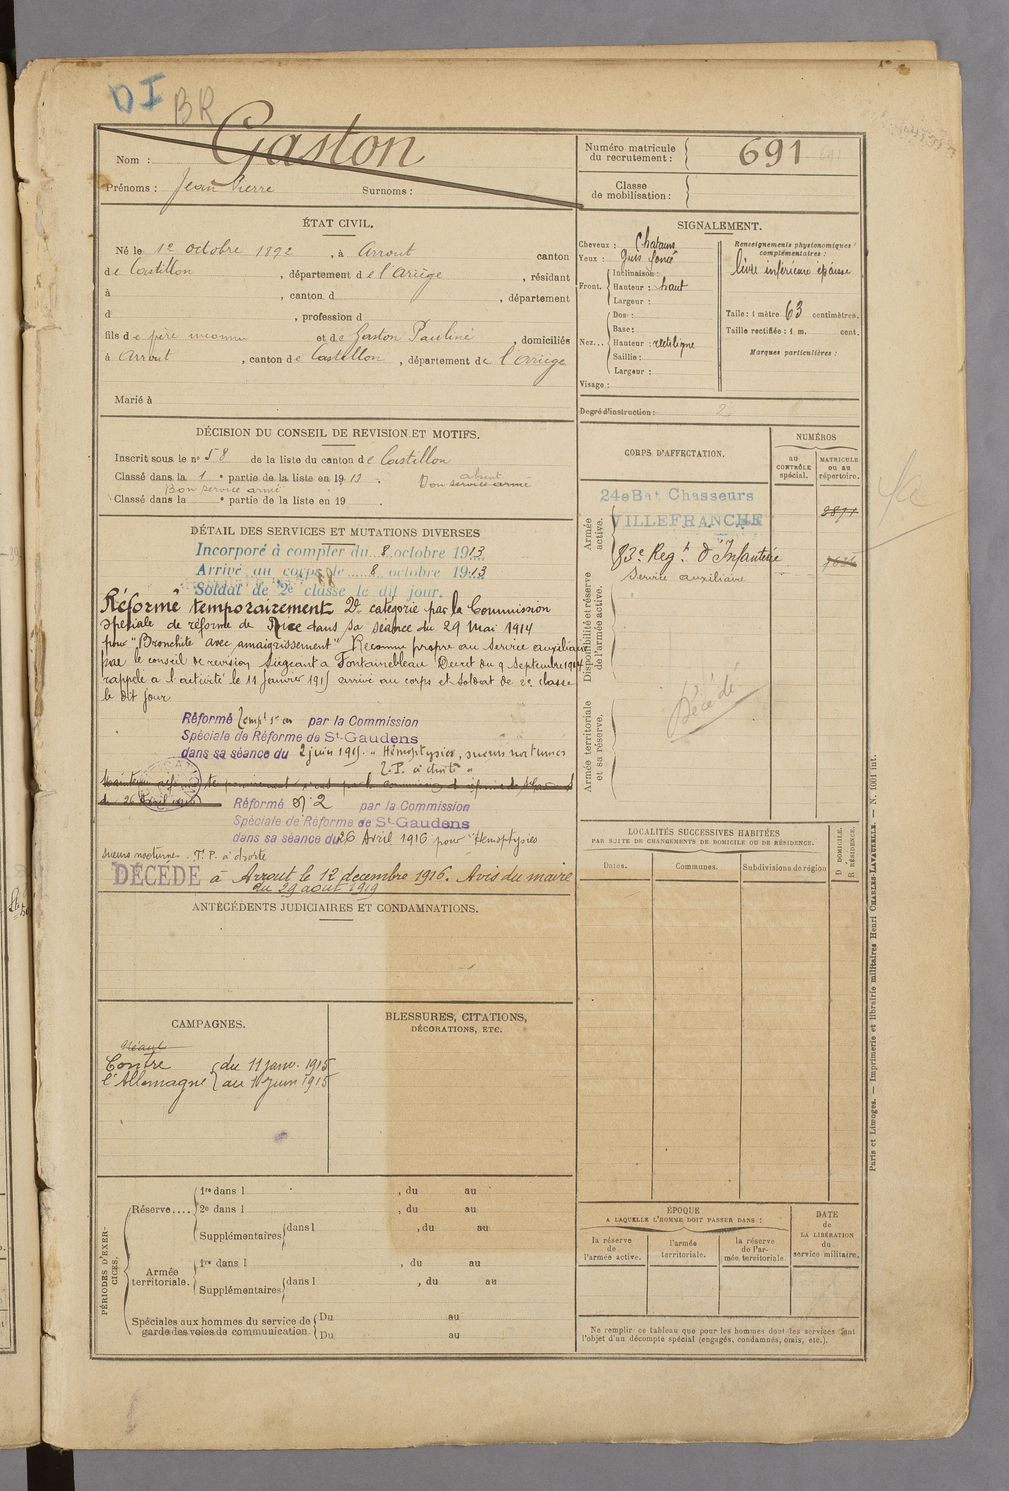 DI BR
Gaston
Nom :
Prénoms : Jean Pierre Surnoms :
Numéro matricule du recrutement : 691
Classe de mobilisation :
ÉTAT CIVIL.
Né le 12 octobre 1892, à Arrout canton
de Castillon, département de l'Ariège, résidant
à , canton d , département
d , profession d
fils de père inconnu et de Gaston Pauline, domiciliés
à Arrout, canton de Castillon, département de l'Ariège
Marié à
SIGNALEMENT.
Cheveux : Chatains
Yeux : Gris foncé
Front. Inclinaison :
Hauteur : haut
Largeur :
Nez... Dos :
Base :
Hauteur : rectiligne
Saillie :
Largeur :
Visage :
Renseignements physionomiques complémentaires :
lèvre inférieure épaisse
Taille : 1 mètre 63 centimètres.
Taille rectifiée : 1 m. cent.
Marques particulières :
Degré d'instruction : 2
DÉCISION DU CONSEIL DE REVISION ET MOTIFS.
Inscrit sous le n° 58 de la liste du canton de Castillon
Classé dans la 1e partie de la liste en 1913. absent
Bon service armé Bon service armé
Classé dans la e partie de la liste en 19
DÉTAIL DES SERVICES ET MUTATIONS DIVERSES
Incorporé à compter du 8 octobre 1913
Arrivé au corps le 8 octobre 1913
Soldat de 2e classe le dit jour.
Réformé temporairement 2e catégorie par la Commission
spéciale de réforme de Nice dans sa séance du 29 Mai 1914
pour "Bronchite avec amaigrissement" Reconnu propre au service auxiliaire
par le conseil de revision siégeant à Fontainebleau Décret du 9 septembre 1914
rappelé à l'activité le 11 Janvier 1915 arrivé au corps et soldat de 2e classe
le dit jour
Réformé Tempt 1 an par la Commission
Spéciale de Réforme de St-Gaudens
dans sa séance du 2 juin 1915. "Hémoptysies, sueurs nocturnes
T.P. à droite"
du 26 Avril 1916
Réformé N° 2 par la Commission
Spéciale de Réforme de St-Gaudens
dans sa séance du 26 Avril 1916 pour "Hémoptysies
sueurs nocturnes. T. P. à droite
DÉCÉDÉ à Arrout le 12 décembre 1916. Avis du maire
du 29 août 1919
CORPS D'AFFECTATION.
NUMÉROS
AU CONTRÔLE spécial.
MATRICULE ou au répertoire.
Armée active.
24e Bat Chasseurs
VILLEFRANCHE
83e Regt d'Infanterie
Service auxiliaire
Disponibilité et réserve de l'armée active.
Décédé
Armée territoriale et sa réserve.
LOCALITÉS SUCCESSIVES HABITÉES
PAR SUITE DE CHANGEMENTS DE DOMICILE OU DE RÉSIDENCE.
Dates. Communes. Subdivisions de région
D DOMICILE. R RÉSIDENCE.
ANTÉCÉDENTS JUDICIAIRES ET CONDAMNATIONS.
CAMPAGNES.
Néant
Contre l'Allemagne
du 11 janv. 1915
au 1 Juin 1915
BLESSURES, CITATIONS,
DÉCORATIONS, ETC.
PÉRIODES D'EXERCICES.
Réserve.... 1re dans l , du au
2e dans l , du au
Supplémentaires dans l , du au
Armée territoriale. 1re dans l , du au
Supplémentaires dans l , du au
Spéciales aux hommes du service de garde des voies de communication
Du au
Du au
ÉPOQUE
A LAQUELLE L'HOMME DOIT PASSER DANS :
la réserve de l'armée active.
l'armée territoriale.
la réserve de l'armée territoriale.
DATE de LA LIBÉRATION du service militaire.
Ne remplir ce tableau que pour les hommes dont les services font
l'objet d'un décompte spécial (engagés, condamnés, omis, etc.).
Paris et Limoges. — Imprimerie et librairie militaires Henri CHARLES-LAVAUZELLE. — N. 1001 int.